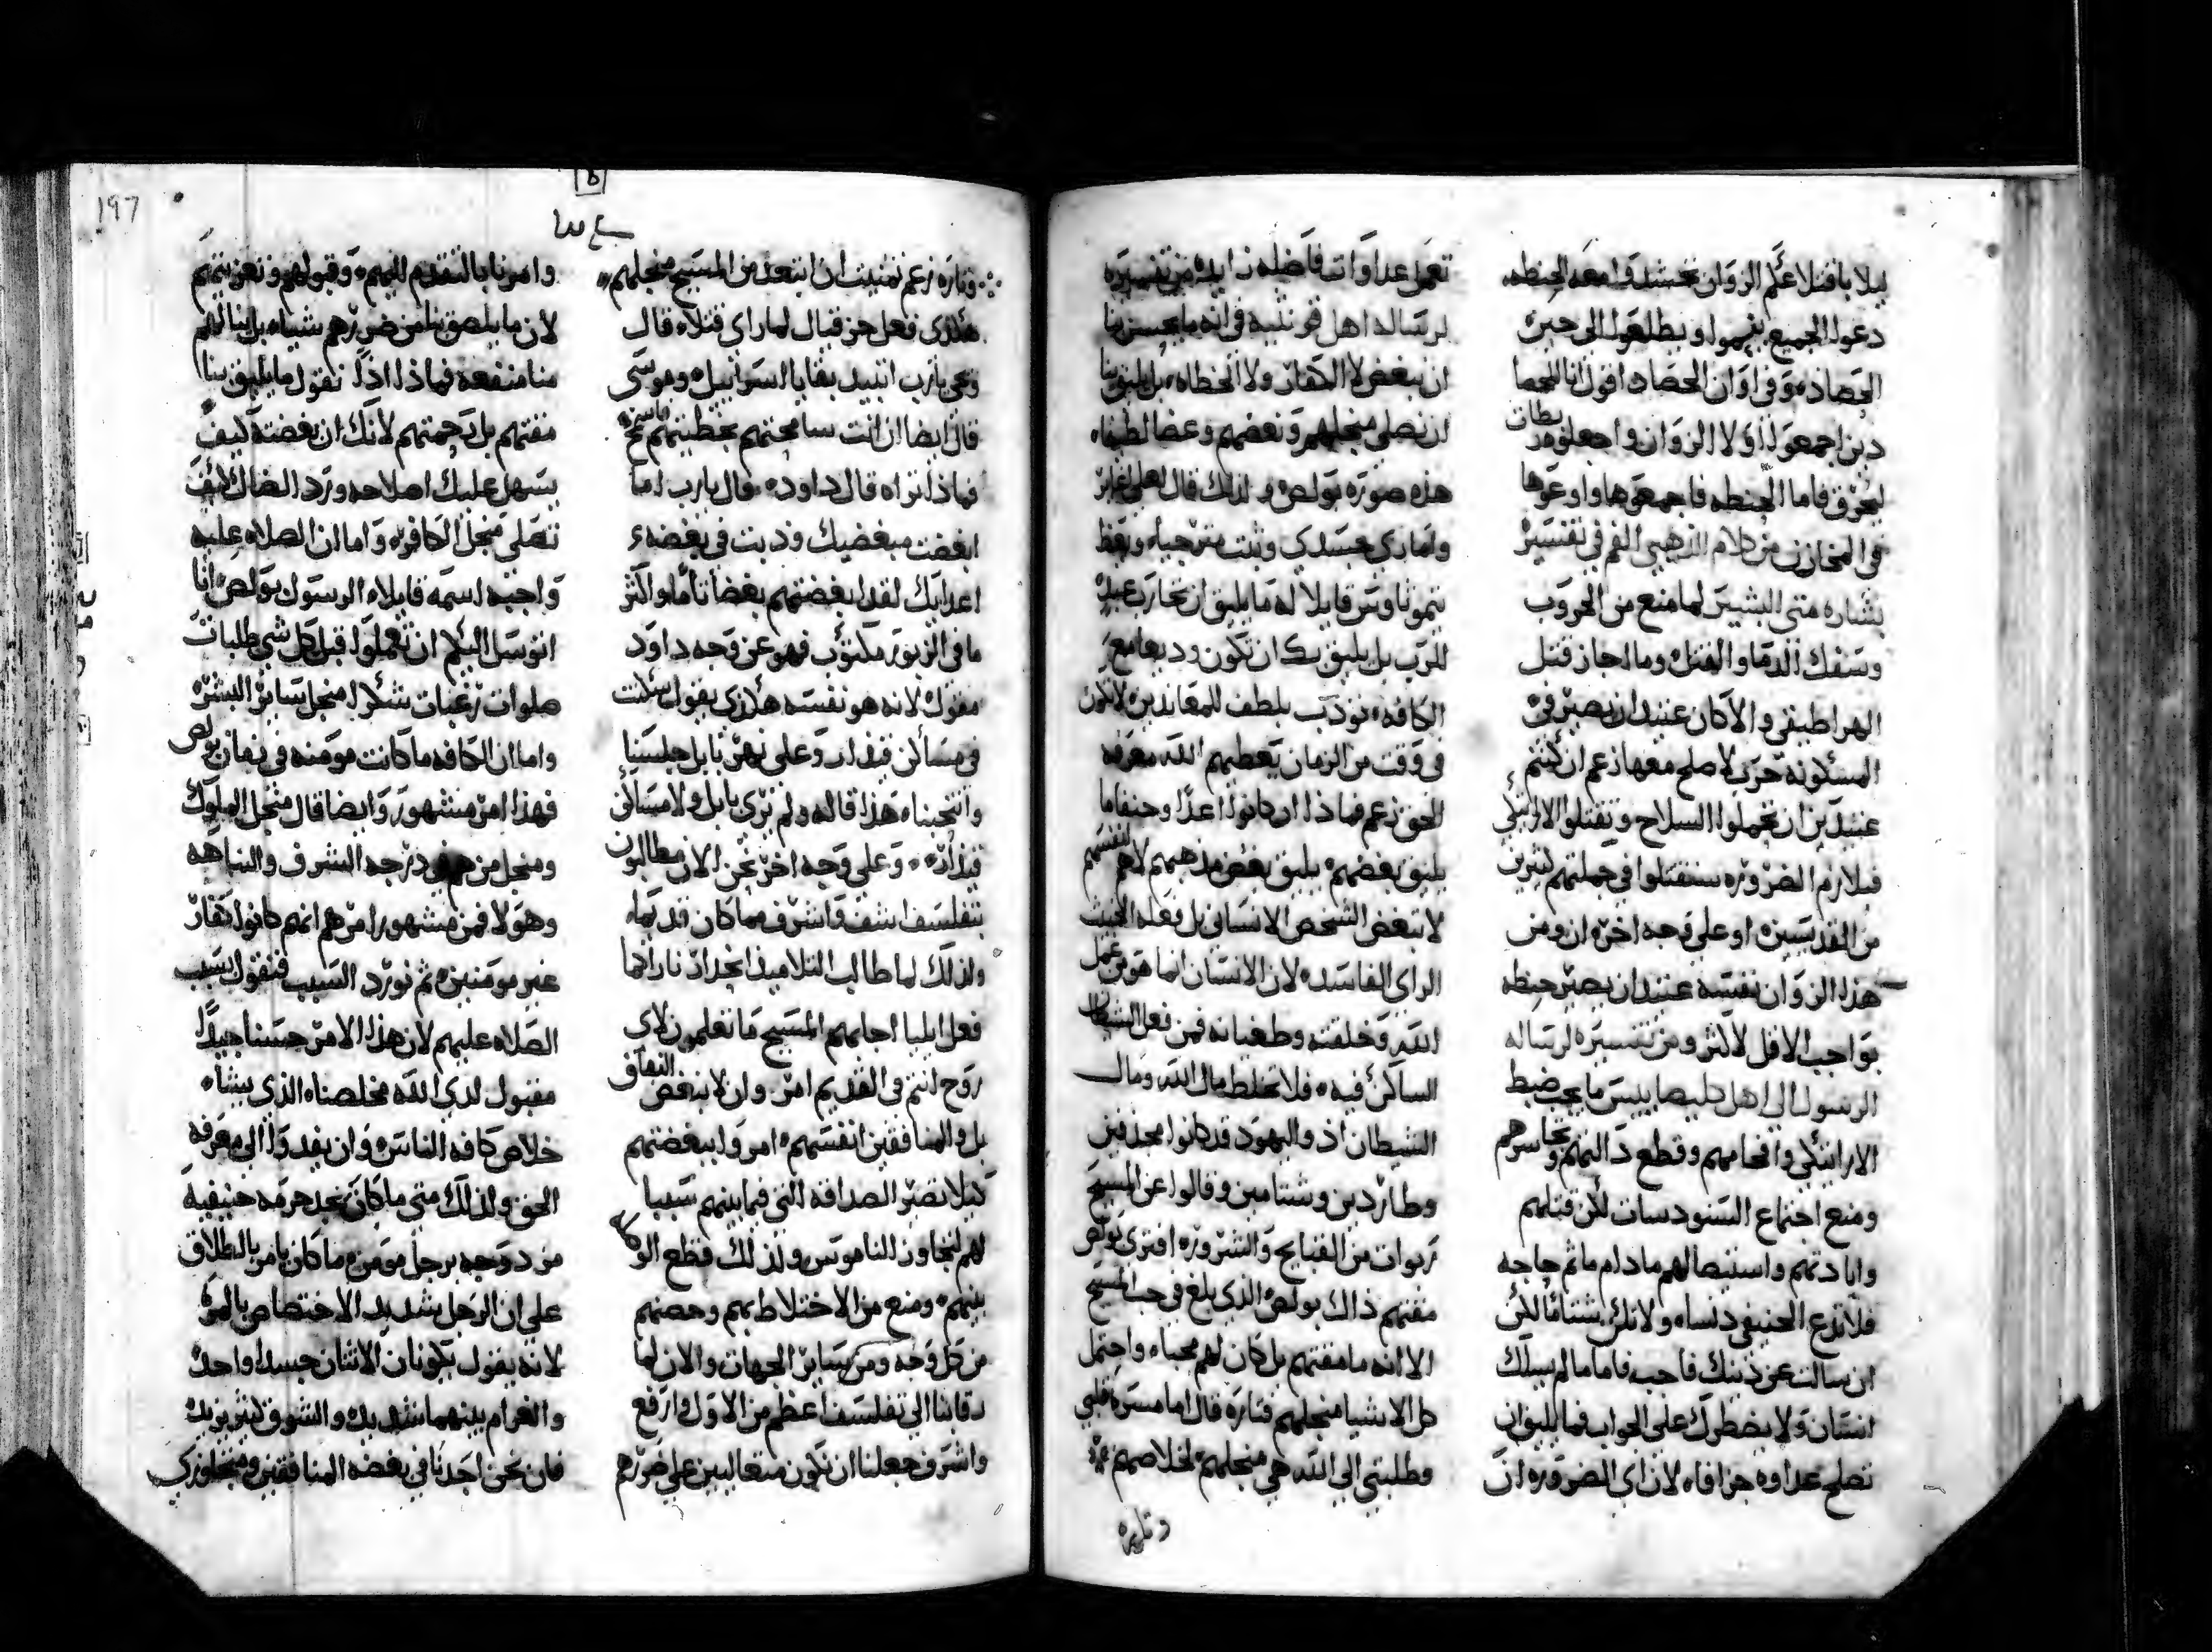 ليلا باقتلاعكم الزوان تحشدوا معه الحنطه
دعوا الجميع ينموا ويطلعوا الى حين
الحصاد وفي اوان الحصاد اقول انا للحصا
دين اجمعوا اولا الزوان واجعلوه ربطات
ليحرق فاما الحنطه فاجمعوها واوعوها
في المخازن من كلام الذهبي الفم في تفسير
بشاره متى البشير لما منع من الحروب
وسفك الدما والقتل وما اجاز قتل
الهراطيقي والا كان عتيدا ان يصير في
المسكونه حرب لا صلح معها زعم ان كنتم
عتيدين ان تحملوا السلاح وتقتلوا الاراتيكي
فبلازم الضروره ستقتلوا في جملتهم كثيرين
من القديسين او على وجه اخر ان ومن
هذا الزوان نفسه عتيد ان يصير حنطه
بواجب الاقل لاكثر ومن تفسيره لرساله
الرسول الى اهل كليصايس ما يجب ضبط
الاراتيكي وافحامهم وقطع دالتهم وتجاسرهم
ومنع اجتماع السنودسات لكن قتلهم
وابادتهم واستيصالهم مادام ما ثم حاجه
فلا تدع الحنيفي دنسا ولا تك شتاما لكن
ان سالت عن دينك فاجب فاما ما لم يسلك
انسان ولا يضطرك على الجواب فما يليق ان
تصلح عداوه جزافا لان اي الضروره ان
تعمل عداوات فاضله زايده من تفسيره
لرساله اهل قرنثيه في انه ما يحسن بنا
ان نبغض لا الكفار ولا الخطاه بل يليق بنا
ان نصلي منجلهم ونعضهم وعضا لطيفا
هذه صوره بولص و لذلك قال لعلي اغاير
وامازي جسدي وثبت مترجيا ويعظ
تيموثاوس قايلا له ما يليق ان تحارب عبد
للرب بل يليق بك ان تكون وديعا مع
الكافه نودب بلطف للمعاندين لانكون
في وقت من الزمان يعطيهم الله معرفه
الحق زعم فماذا ان كانوا اعدا وحنفا ما
يليق بغضهم يليق بغض مذهبهم لا هم لنفسهم
لا تبغض الشخص الانساني بل فعله الخبيث
الراي الفاسد لان الانسان انما هو من عمل
الله وخلقته وطغيانه فمن فعل الشيطان
الساكن فيه فلا تخلط مال الله ومال
الشيطان اذ واليهود قد كانوا مجدفين
وطاردين وشتامين وقالوا عن المسيح
ربوات من القبايح والشروره افترى بولص
مقتهم ذاك بولص الذي بلغ في حب المسيح
الا انه ما مقتهم بل كان لهم محبا واحتمل
كل الاشيا منجلهم فتاره قال اما مسرة قلبي
وطلبتي الى الله هي منجلهم لخلاصهم
وتاره
197
وتاره زعم تمنيت ان ابتعد من المسيح منجلهم
هكذى فعل حزقيال لما راى قتلاه قال
وهي يا رب اتبيد بقايا اسراييل وموسى
قال ايضا ان انت سامحتهم بخطيتهم
فماذا تراه قال داود قال يا رب اما
ابغضت مبغضيك وذبت في بغضه
اعدايك لقد ابغضتهم بغضا تاما واكثر
ما في الزبور مكتوب فهو عن وجه داود
مقول لانه هو نفسه هكذى يقول سكنت
في مساكن قيدار وعلى نهر بابل جلسنا
وانتحبنا هذا قاله ولم نرى بابل ولا مساكن
قيدار وعلى وجه اخر نحن الان مطالبون
بتفلسف اشف واشرف مما كان قديما
ولذلك لما طالب التلاميذ انحدار نار كما
فعل ايليا اجابهم المسيح ما تعلمون لاي
روح انتم في القديم امر وان لا نبغض النفاق
بل والمنافقين انفسهم امروا ببغضتهم
كيلا تصير الصداقه التي فيما بينهم سببا
لهم لتجاوز الناموس ولذلك قطع الوكاله
بينهم ومنع من الاختلاط بهم وحصنهم
من كل وجه ومن ساير الجهات والان لما
دقانا الى تفلسف اعظم من الاول وارفع
واشرف جعلنا ان نكون متعاليين على ضررهم
وامرنا بالتقدم اليهم وقبولهم وتعزيتهم
لان ما يلصق بنا من ضررهم شيا بل ينالهم
منا منفعه فماذا اذا نقول ما يليق بنا
مقتهم بل رحمتهم لانك ان بغضته كيف
يسهل عليك اصلاحه ورد الضال كيف
تصلي منجل الكافر واما ان الصلاه عليه
واجبه اسمع قايلا الرسول بولص انا
اتوسل اليكم ان تعملوا قبل كل شي طلبات
صلوات رغبات شكرا منجل ساير البشر
واما ان الكافه ما كانت مومنه في زمان بولص
فهذا امر مشهور وايضا قال منجل الملوك
ومنجل من هو في درجه الشرف والنباهه
وهولا فمن مشهور امرهم انهم كانوا كفار
غير مومنين ثم نورد السبب فنقول بسبب
الصلاه عليهم لان هذا الامر حسنا جيدا
مقبول لدى الله مخلصنا الذي يشاء
خلاص كافه الناس وان يفدوا الى معرفه
الحق ولذلك متى ما كان يجد حرمه حنيفيه
مزدوجه برجل مومن ما كان يامر بالطلاق
على ان الرجل شديد الاختصاص بالمره
لانه يقول يكونان الاثنان جسدا واحدا
والغرام بينهما شديد والشوق كثير يزيد
فان نحن اجدنا في بغضه المنافقين ومتجاوزي